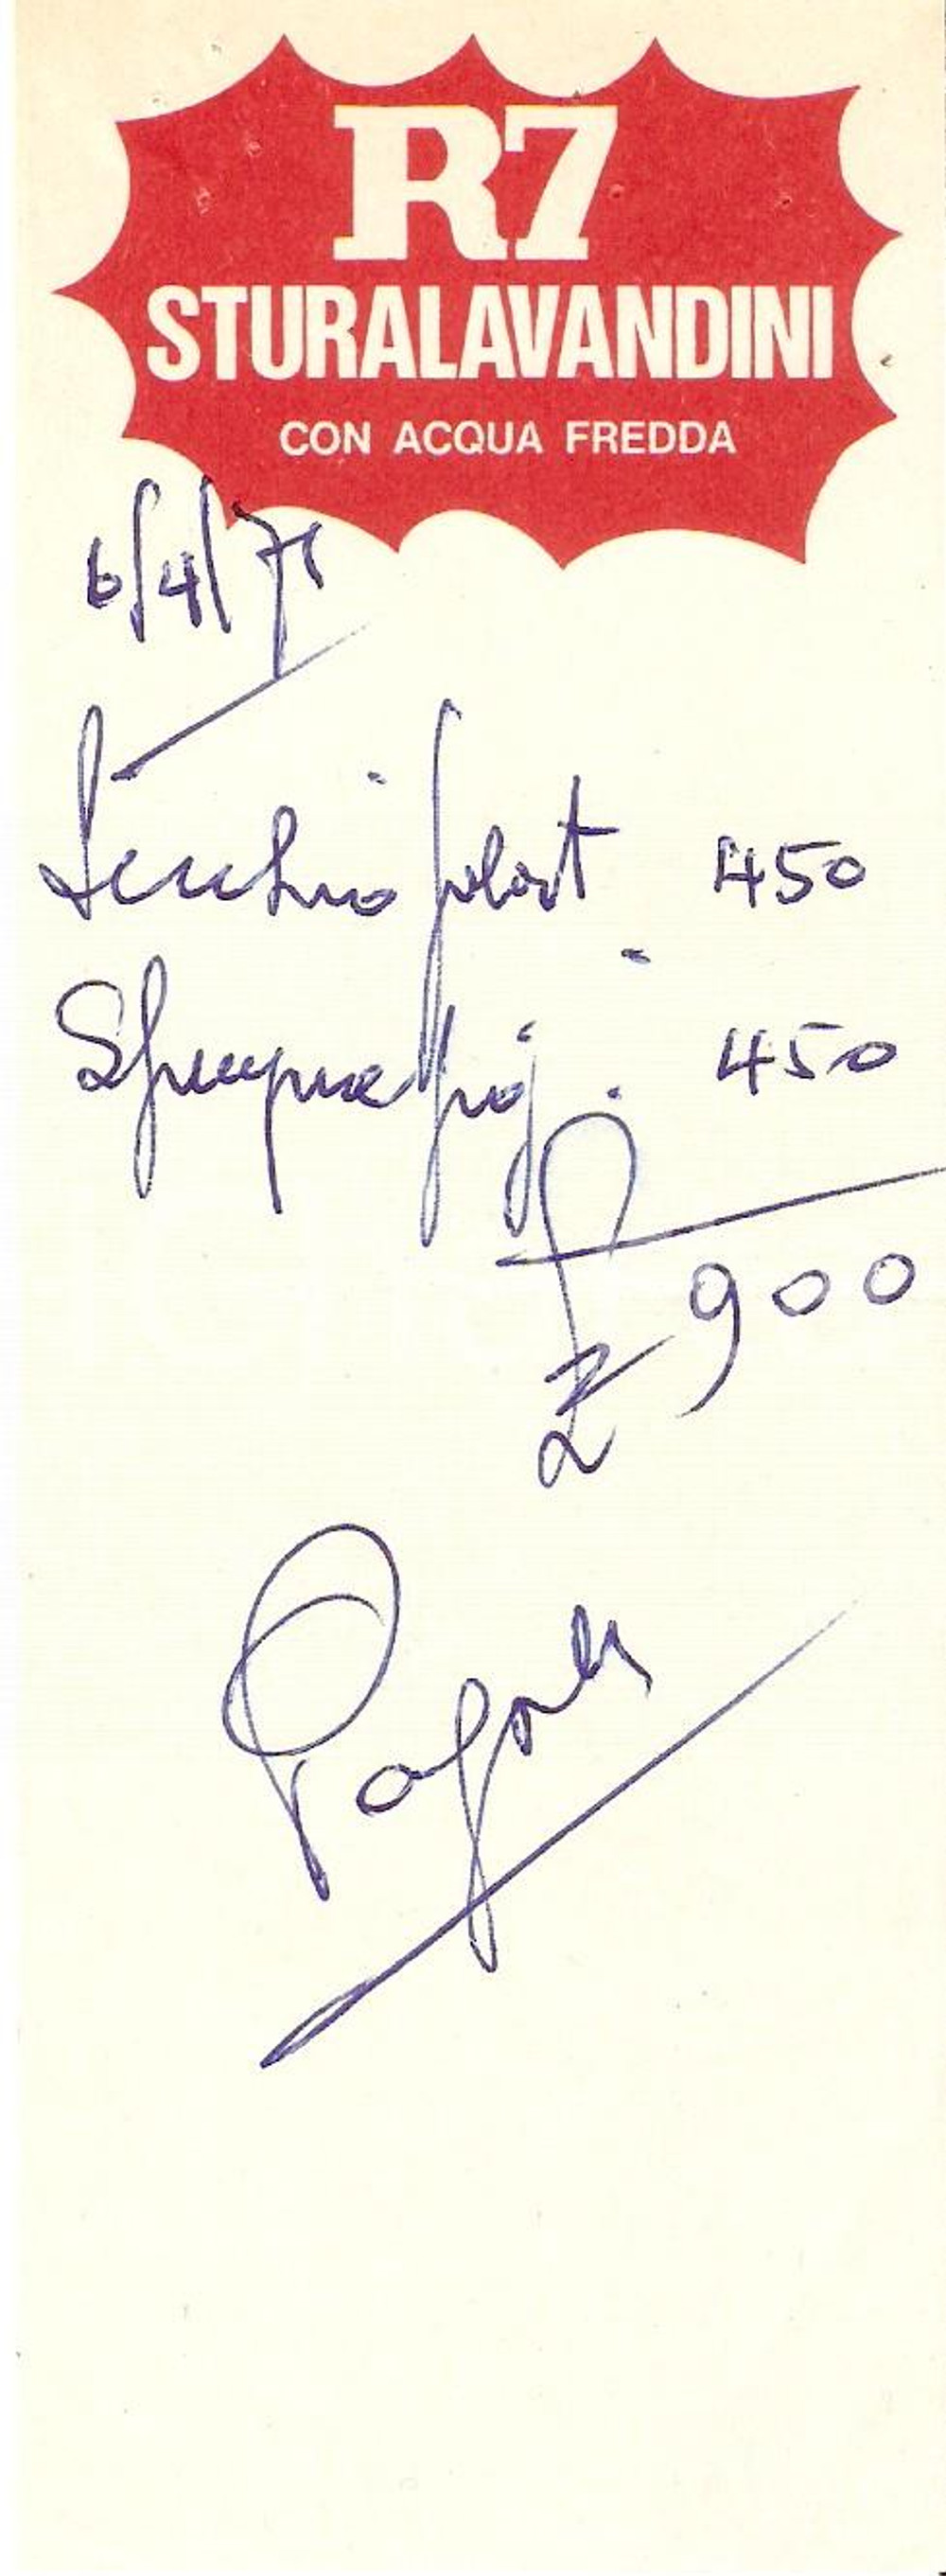 R7
STURALAVANDINI
CON ACQUA FREDDA
6/4/71
Secchio plast 450
450
£ 900
Pagato